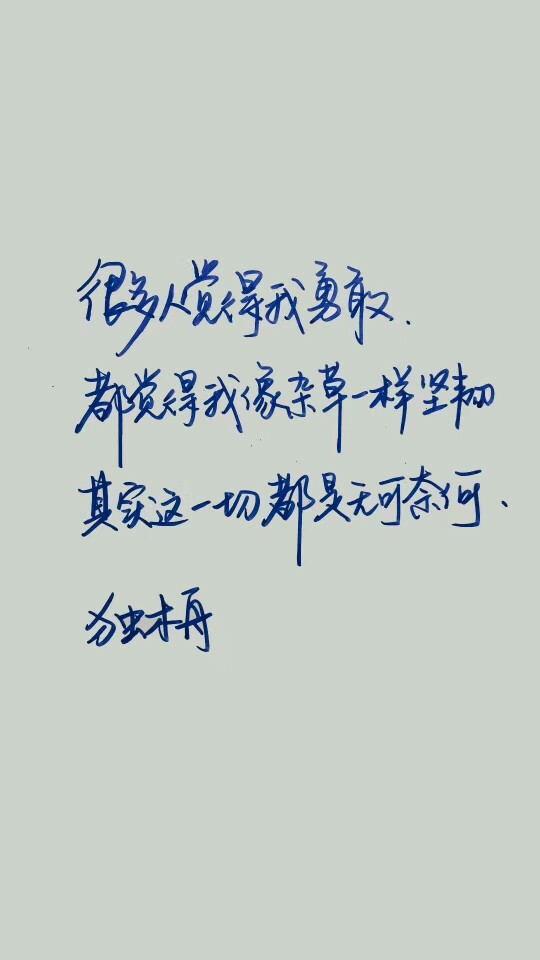 很多人觉得我勇敢、
都觉得我像杂草一样坚韧
其实这一切都是无可奈何、
独